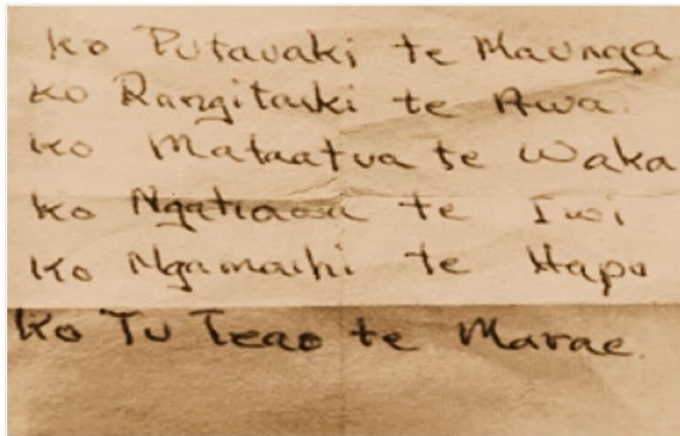 Ko Putauaki te Maunga
Ko Rangitaiki te Awa.
Ko Mataatua te Waka
Ko Ngatiawa te Iwi
Ko Ngamaihi te Hapu
Ko Tu Teao te Marae.